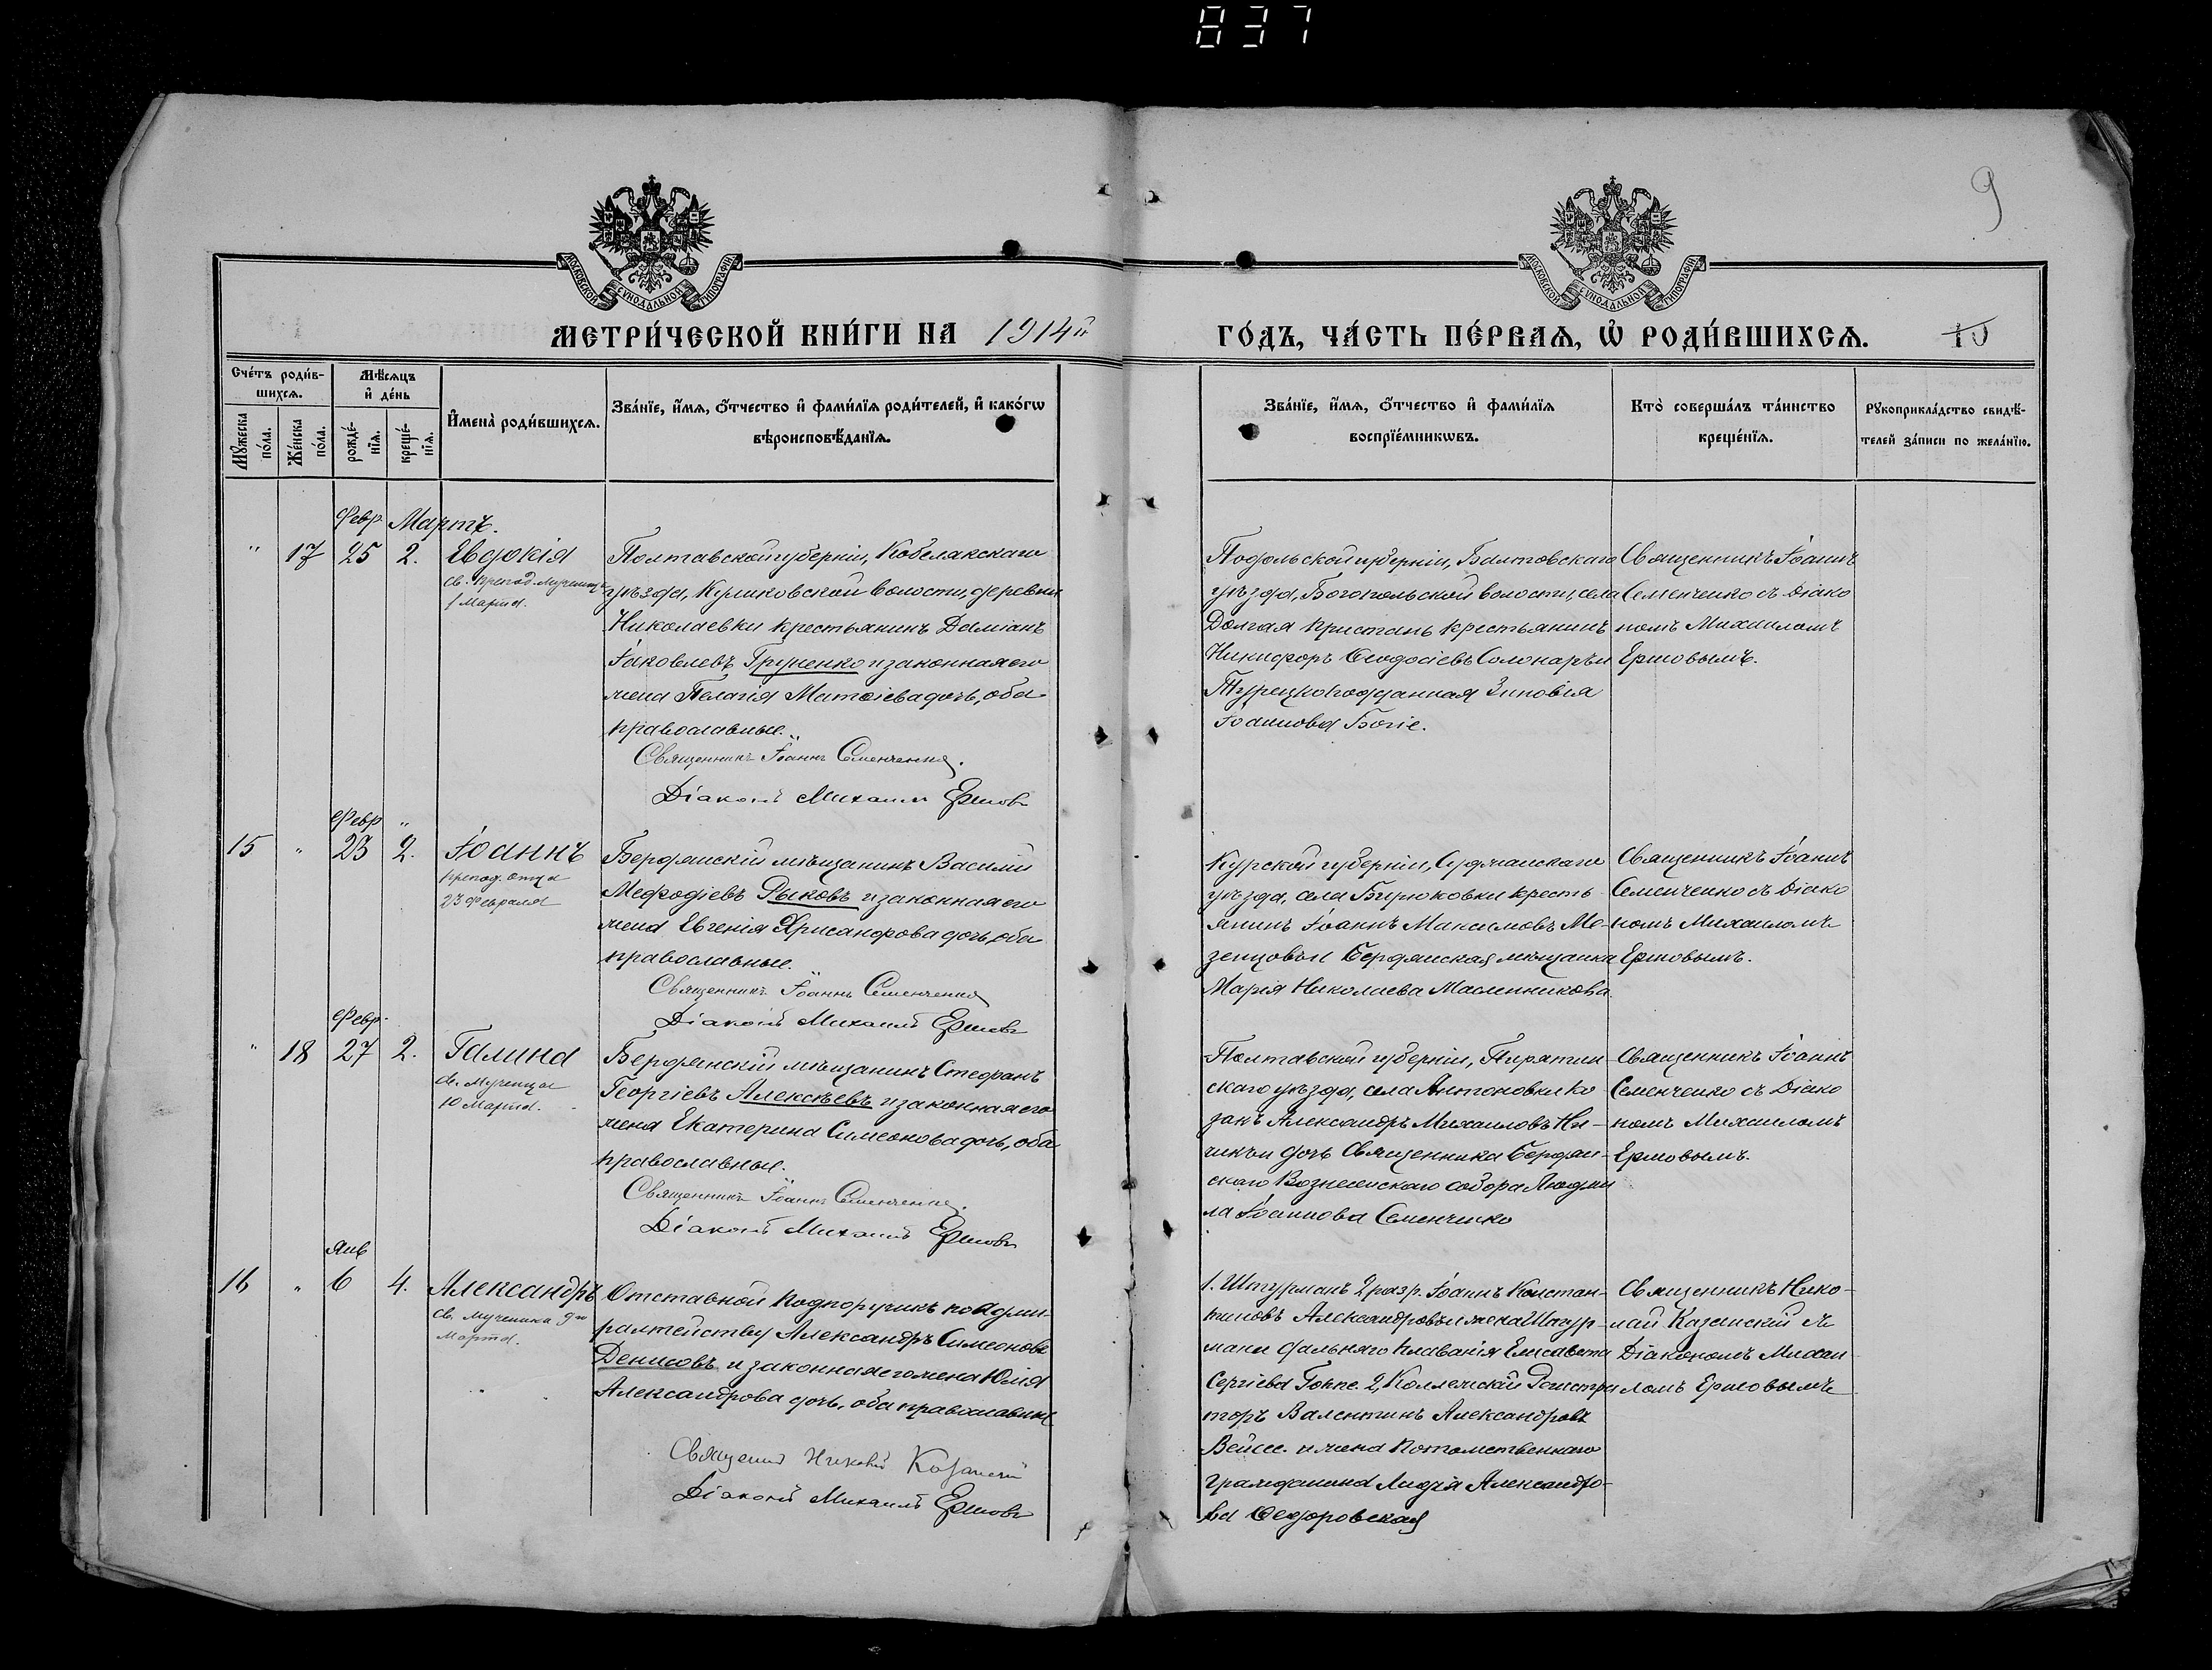 837
9
МОСКОВСКОЙ СѴНОДАЛЬНОЙ ТИПОГРАФІИ
МОСКОВСКОЙ СѴНОДАЛЬНОЙ ТИПОГРАФІИ
МЕТРИ́ЧЕСКОЙ КНИ́ГИ НА 1914й
ГО́ДЪ, ЧА́СТЬ ПЕ́РВАѦ, Ѡ҆ РОДИ́ВШИХСѦ. 10
Сче́тъ роди́в-
шихсѧ.
Мѣ́сѧцъ
и҆ де́нь
Мꙋ́жеска
по́ла.
Же́нска
по́ла.
рожде́-
нїѧ.
креще́-
нїѧ.
И҆мена̀ роди́вшихсѧ.
Зва́нїе, и҆́мѧ, ѻ҆́тчество и҆ фами́лїѧ роди́телей, и҆ како́гѡ
вѣроисповѣ́данїѧ.
Зва́нїе, и҆́мѧ, ѻ҆́тчество и҆ фами́лїѧ
воспрїе́мникѡвъ.
Кто̀ соверша́лъ та́инство
креще́нїѧ.
Рꙋкоприкла́дство свидѣ́-
телей за́писи по жела́нїю.
Февр. Мартъ.
" 17 25 2. Евдокія
св. препод. мученицы
1 Марта.
Полтавской губерніи, Кобелакскаго
уѣзда, Куликовской волости, деревни
Николаевки крестьянинъ Даміанъ
Іаковлевъ Груненко и законная его
жена Пелагія Матѳіева дочь, оба
православные.
Священникъ Іоаннъ Семенченко.
Діаконъ Михаилъ Ершовъ
Подольской губерніи, Балтовскаго
уѣзда, Богопольской волости, села
Долгая Пристань крестьянинъ
Никифоръ Ѳеодосіевъ Солонарь и
Турецкоподданная Зиновія
Іоаннова Богіе.
Священникъ Іоаннъ
Семенченко съ Діако
номъ Михаиломъ
Ершовымъ.
Февр "
15 " 23 2. Іоаннъ
препод. отца
23 Февраля
Бердянскій мѣщанинъ Василій
Мефодіевъ Рыковъ и законная его
жена Евгенія Хрисанфова дочь, оба
православные.
Священникъ Іоаннъ Семенченко
Діаконъ Михаилъ Ершовъ
Курской губерніи, Суджанскаго
уѣзда, села Бирюковки кресть
янинъ Іоаннъ Максимовъ Ме-
зенцовъ и Бердянская мѣщанка
Марія Николаева Масленникова.
Священникъ Іоаннъ
Семенченко съ Діако
номъ Михаиломъ
Ершовымъ.
Февр.
" 18 27 2. Галина
св. Мученицы
10 Марта.
Бердянскій мѣщанинъ Стефанъ
Георгіевъ Алексѣевъ и законная его
жена Екатерина Симеонова дочь, оба
православные.
Священникъ Іоаннъ Семенченко.
Діаконъ Михаилъ Ершовъ
Полтавской губерніи, Пирятин-
скаго уѣзда, села Антоновки ко
закъ Александръ Михаиловъ Ни-
чикъ и дочь Священника Бердян-
скаго Вознесенскаго собора Людми
ла Іоаннова Семенченко
Священникъ Іоаннъ
Семенченко съ Діако
номъ Михаиломъ
Ершовымъ.
Янв
16 " 6 4. Александръ
св. мученика 9го
Марта.
Отставной Подпоручикъ по Адми-
ралтейству Александръ Симеоновъ
Денисовъ и законная его жена Юлія
Александрова дочь, оба православные
Священникъ Николай Казанскій
Діаконъ Михаилъ Ершовъ
1. Штурманъ 2 разр. Іоаннъ Констан-
тиновъ Александровъ и жена Штур-
мана дальняго плаванія Елисавета
Сергіева Гоппе. 2, Коллежскій Регистра
торъ Валентинъ Александровъ
Вейсе. и жена Потомственнаго
гражданина Лидія Александро-
ва Ѳедоровская
Священникъ Нико-
лай Казанскій съ
Діакономъ Михаи-
ломъ Ершовымъ